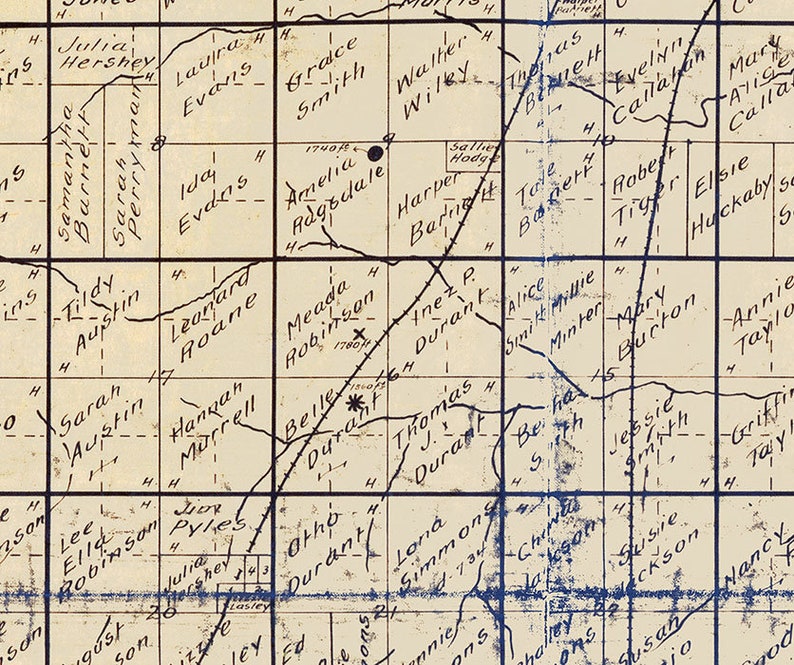 Jones
Morris
Harper
Barnett
Julia
Hershey
Laura
Evans
Grace
Smith
Walter
Wiley
Thomas
Barnett
Evelyn
Callahan
Mary
Alice
Samantha
Barnett
Sarah
Perryman
8
Ida
Evans
1740 ft
Amelia
Ragsdale
9
Harper
Barnett
Sallie
Hodge
10
Tate
Barnett
Robert
Tiger
Elsie
Huckaby
Tildy
Austin
Leonard
Roane
Meada
Robinson
1780 ft
Inez P.
Durant
Alice
Smith
Millie
Minter
Mary
Burton
Annie
17
16
15
Sarah
Austin
Hannah
Murrell
Belle
Durant
1860 ft
Thomas
J.
Durant
Bertha
Smith
Jessie
Smith
Griffin
Lee
Ella
Robinson
Jim
Pyles
Julia
Hershey
1 4 3
Lasley
Otho
Durant
Lona
Simmons
Jackson
Susie
Jackson
Nancy
20
21
22
Ed
Charley
Susan